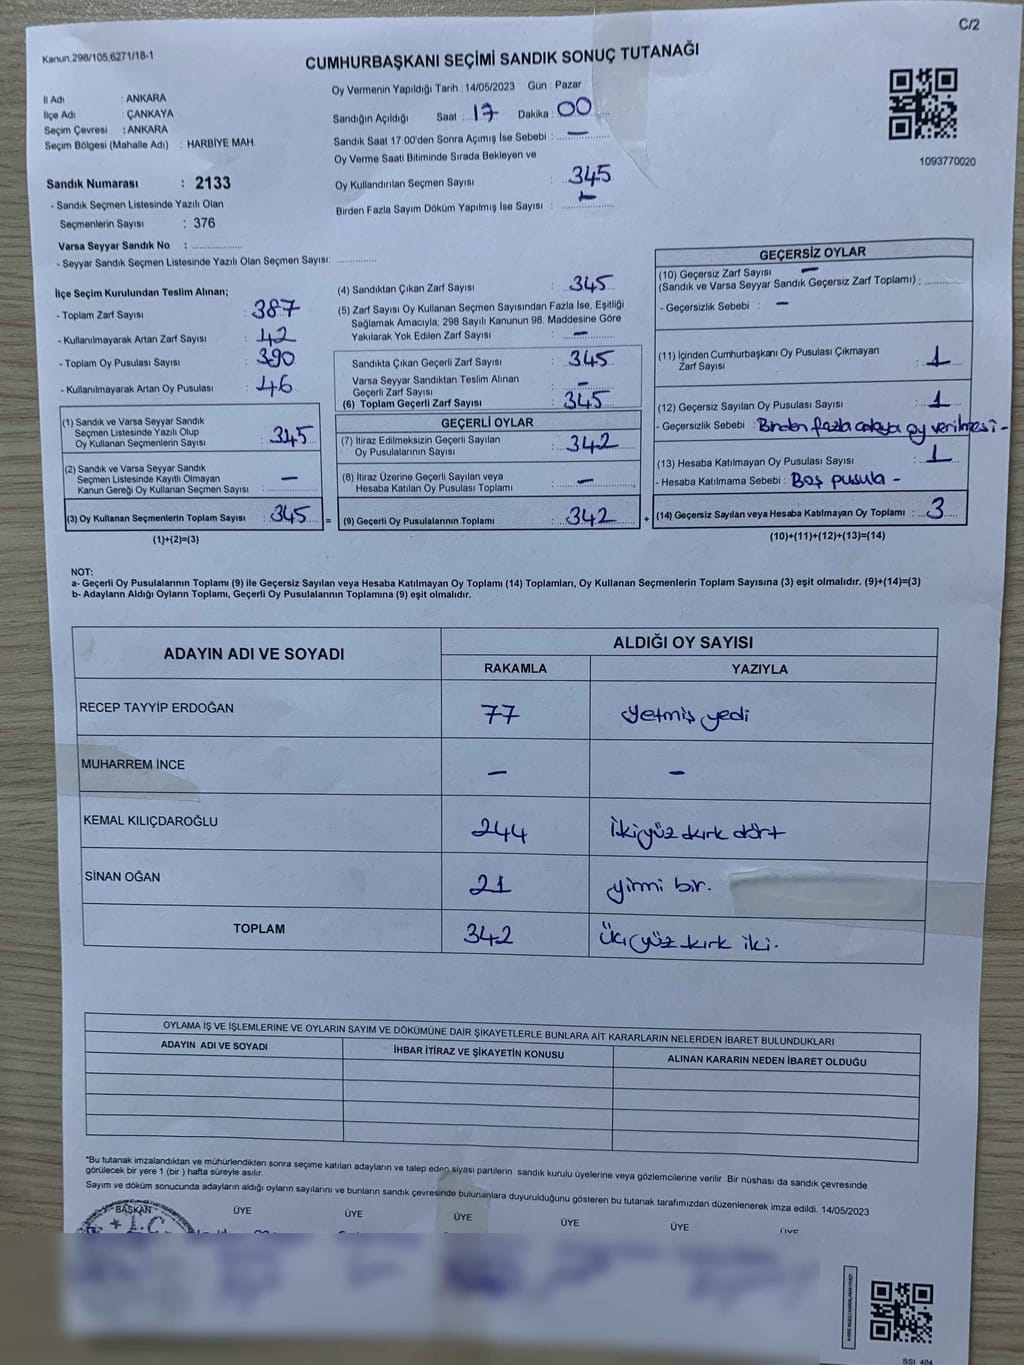 C/2
Kanun:298/105;6271/18-1
CUMHURBAŞKANI SEÇİMİ SANDIK SONUÇ TUTANAĞI
İl Adı : ANKARA
İlçe Adı : ÇANKAYA
Seçim Çevresi : ANKARA
Seçim Bölgesi (Mahalle Adı) : HARBİYE MAH.
Oy Vermenin Yapıldığı Tarih : 14/05/2023 Gün : Pazar
Sandığın Açıldığı Saat : 17 Dakika : 00
Sandık Saat 17:00'den Sonra Açımış İse Sebebi : —
Oy Verme Saati Bitiminde Sırada Bekleyen ve
Oy Kullandırılan Seçmen Sayısı : 345
Birden Fazla Sayım Döküm Yapılmış İse Sayısı : —
1093770020
Sandık Numarası : 2133
- Sandık Seçmen Listesinde Yazılı Olan
Seçmenlerin Sayısı : 376
Varsa Seyyar Sandık No :
- Seyyar Sandık Seçmen Listesinde Yazılı Olan Seçmen Sayısı:
İlçe Seçim Kurulundan Teslim Alınan;
- Toplam Zarf Sayısı : 387
- Kullanılmayarak Artan Zarf Sayısı : 42
- Toplam Oy Pusulası Sayısı : 390
- Kullanılmayarak Artan Oy Pusulası : 46
(1) Sandık ve Varsa Seyyar Sandık
Seçmen Listesinde Yazılı Olup
Oy Kullanan Seçmenlerin Sayısı : 345
(2) Sandık ve Varsa Seyyar Sandık
Seçmen Listesinde Kayıtlı Olmayan
Kanun Gereği Oy Kullanan Seçmen Sayısı : —
(3) Oy Kullanan Seçmenlerin Toplam Sayısı : 345
(1)+(2)=(3)
(4) Sandıktan Çıkan Zarf Sayısı : 345
(5) Zarf Sayısı Oy Kullanan Seçmen Sayısından Fazla İse, Eşitliği
Sağlamak Amacıyla, 298 Sayılı Kanunun 98. Maddesine Göre
Yakılarak Yok Edilen Zarf Sayısı : —
Sandıkta Çıkan Geçerli Zarf Sayısı : 345
Varsa Seyyar Sandıktan Teslim Alınan
Geçerli Zarf Sayısı : —
(6) Toplam Geçerli Zarf Sayısı : 345
GEÇERLİ OYLAR
(7) İtiraz Edilmeksizin Geçerli Sayılan
Oy Pusulalarının Sayısı : 342
(8) İtiraz Üzerine Geçerli Sayılan veya
Hesaba Katılan Oy Pusulası Toplamı : —
= (9) Geçerli Oy Pusulalarının Toplamı : 342 +
GEÇERSİZ OYLAR
(10) Geçersiz Zarf Sayısı —
(Sandık ve Varsa Seyyar Sandık Geçersiz Zarf Toplamı) :
- Geçersizlik Sebebi : —
(11) İçinden Cumhurbaşkanı Oy Pusulası Çıkmayan
Zarf Sayısı : 1
(12) Geçersiz Sayılan Oy Pusulası Sayısı : 1
- Geçersizlik Sebebi : Birden fazla adaya oy verilmesi -
(13) Hesaba Katılmayan Oy Pusulası Sayısı : 1
- Hesaba Katılmama Sebebi : Boş pusula -
(14) Geçersiz Sayılan veya Hesaba Katılmayan Oy Toplamı : 3
(10)+(11)+(12)+(13)=(14)
NOT:
a- Geçerli Oy Pusulalarının Toplamı (9) ile Geçersiz Sayılan veya Hesaba Katılmayan Oy Toplamı (14) Toplamları, Oy Kullanan Seçmenlerin Toplam Sayısına (3) eşit olmalıdır. (9)+(14)=(3)
b- Adayların Aldığı Oyların Toplamı, Geçerli Oy Pusulalarının Toplamına (9) eşit olmalıdır.
ADAYIN ADI VE SOYADI
ALDIĞI OY SAYISI
RAKAMLA YAZIYLA
RECEP TAYYİP ERDOĞAN 77 yetmiş yedi
MUHARREM İNCE — —
KEMAL KILIÇDAROĞLU 244 ikiyüz kırk dört
SİNAN OĞAN 21 yirmi bir.
TOPLAM 342 üçyüz kırk iki.
OYLAMA İŞ VE İŞLEMLERİNE VE OYLARIN SAYIM VE DÖKÜMÜNE DAİR ŞİKAYETLERLE BUNLARA AİT KARARLARIN NELERDEN İBARET BULUNDUKLARI
ADAYIN ADI VE SOYADI İHBAR İTİRAZ VE ŞİKAYETİN KONUSU ALINAN KARARIN NEDEN İBARET OLDUĞU
*Bu tutanak imzalandıktan ve mühürlendikten sonra seçime katılan adayların ve talep eden siyasi partilerin sandık kurulu üyelerine veya gözlemcilerine verilir. Bir nüshası da sandık çevresinde
görülecek bir yere 1 (bir ) hafta süreyle asılır.
Sayım ve döküm sonucunda adayların aldığı oyların sayılarını ve bunların sandık çevresinde bulunanlara duyurulduğunu gösteren bu tutanak tarafımızdan düzenlenerek imza edildi. 14/05/2023
BAŞKAN ÜYE ÜYE ÜYE ÜYE ÜYE ÜYE
T.C
SSI_404